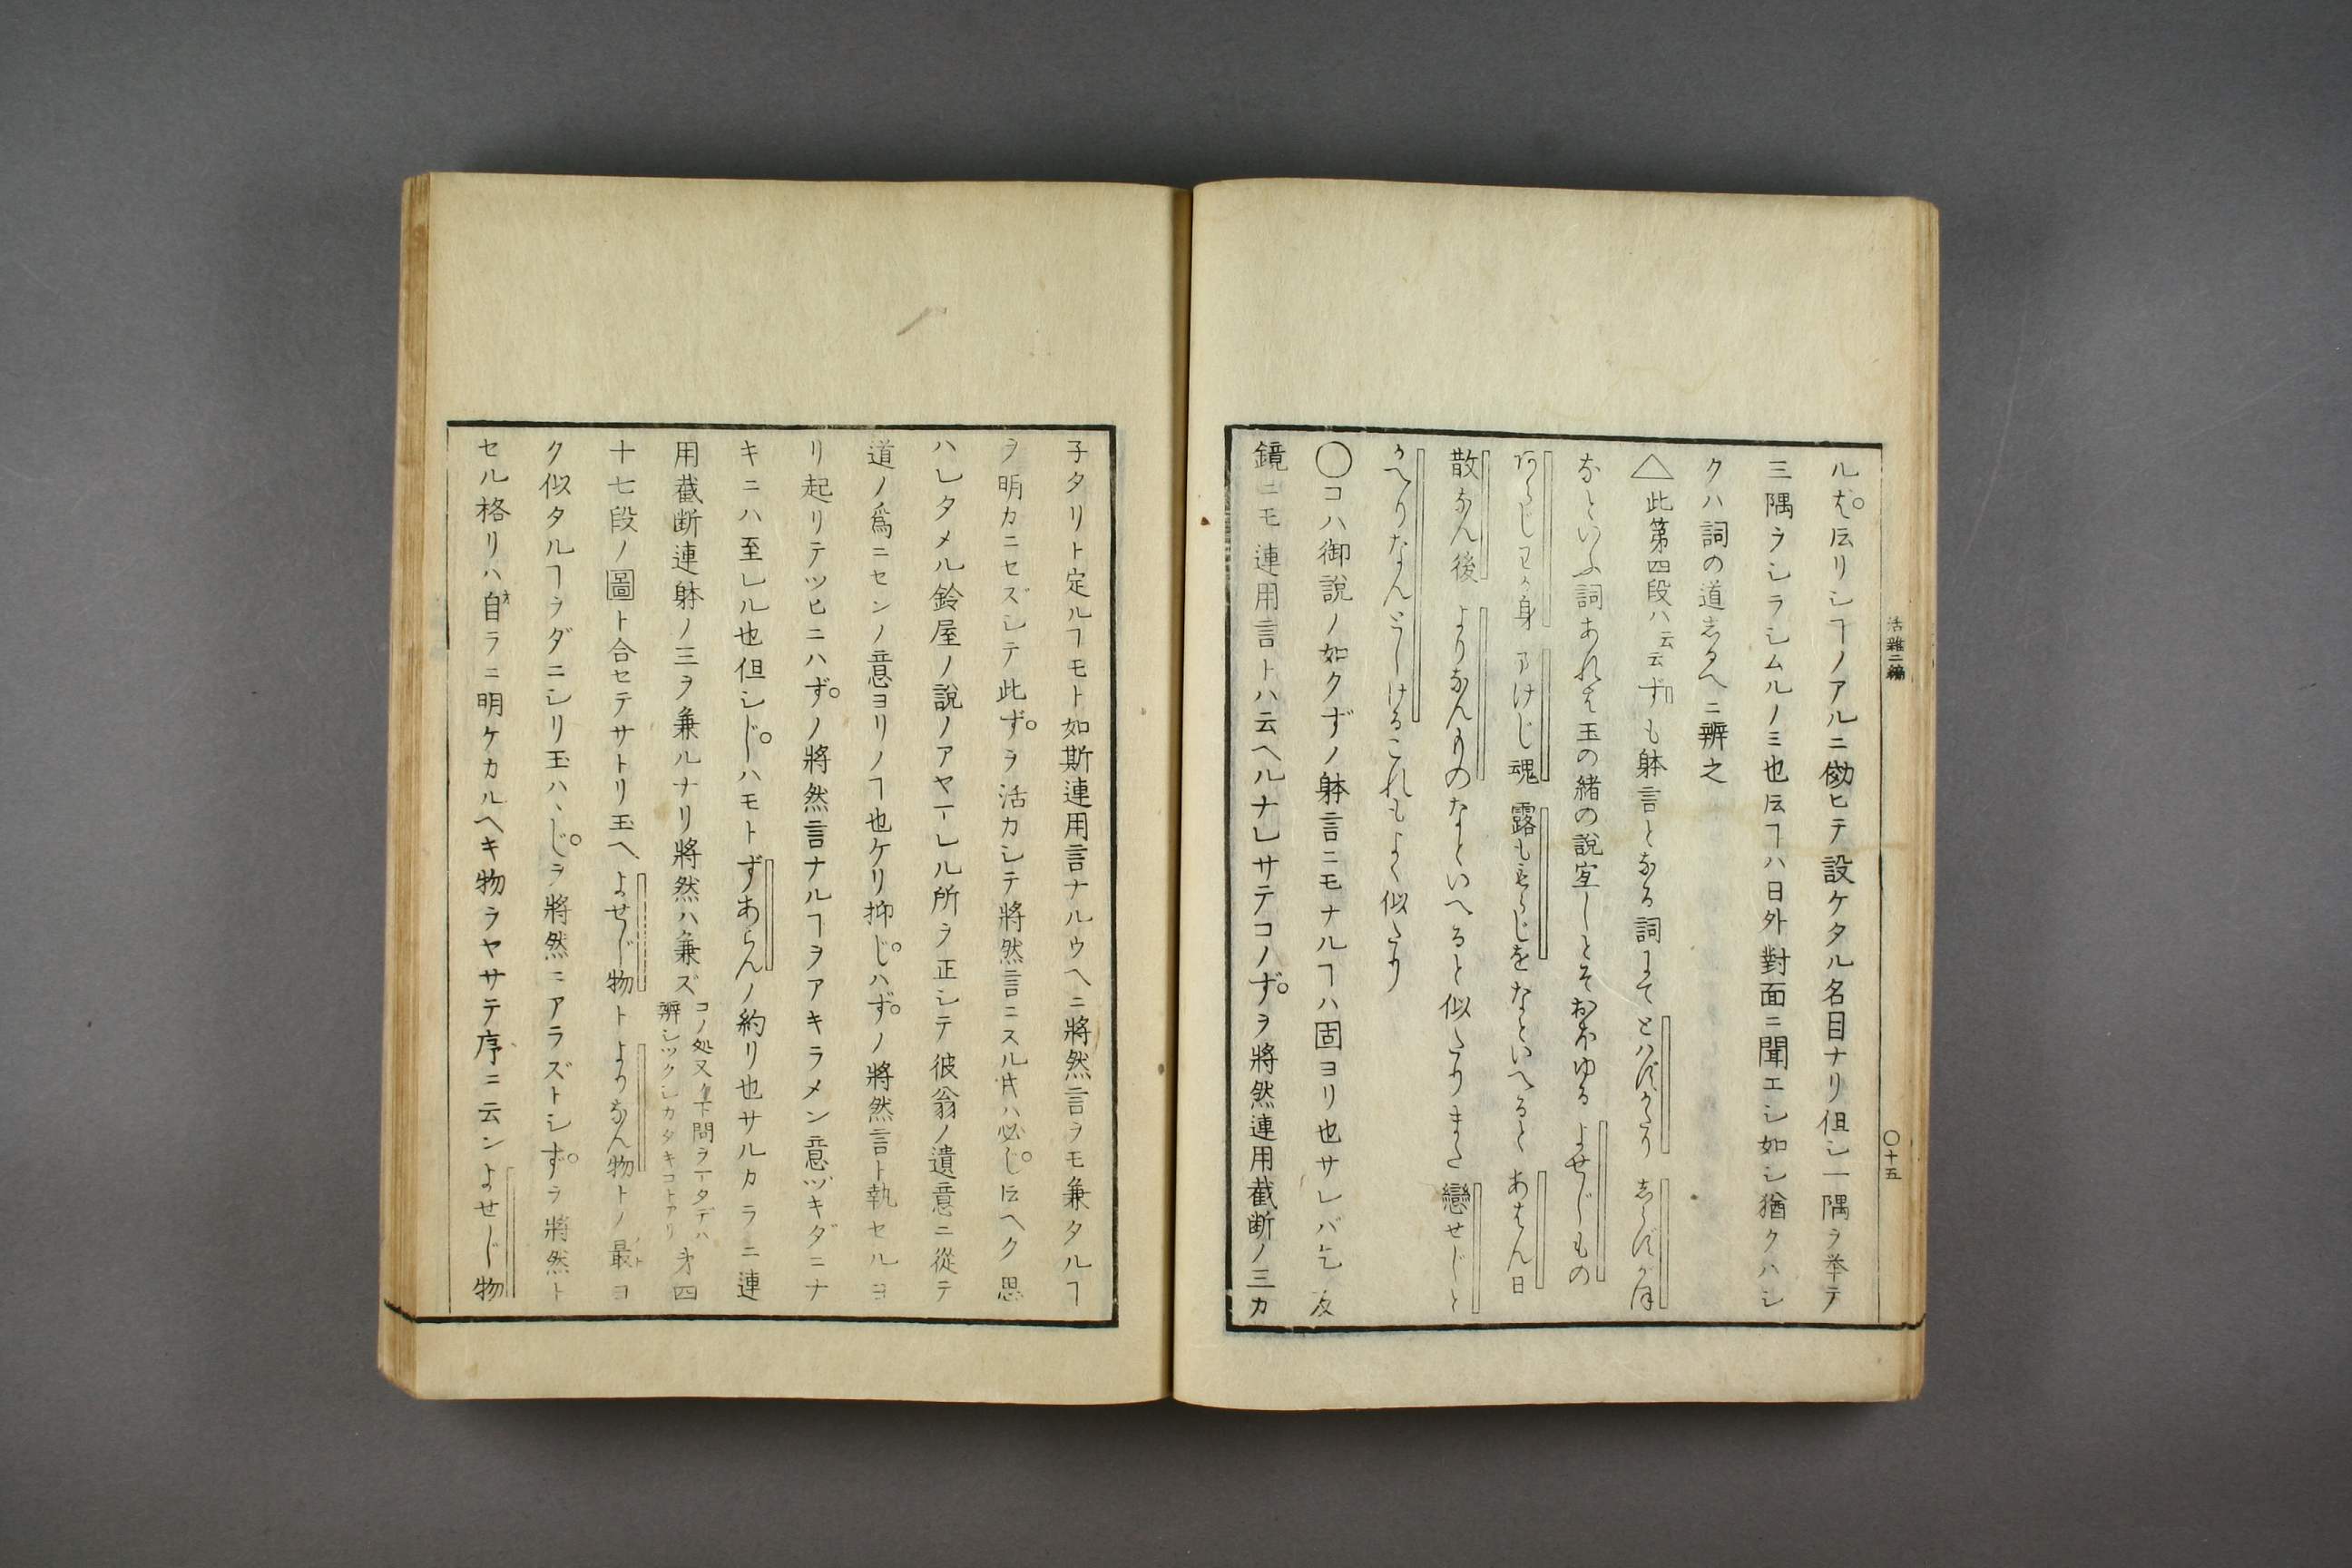 ルぞ伝リシヿノアルニ倣ヒテ設ケタル名目ナリ但シ一隅ヲ挙テ
三隅ヲシラシムルノミ也伝ヿハ日外對面ニ聞エシ如シ猶クハシ
クハ詞の道志るへニ辨之
△此第四段ハ云云ずも躰言となる詞にてとはずがたり しらずがほ
なといふ詞あれは玉の緒の説宜しとそおほゆる よせじもの
あらじわが身 まけじ魂 露ももらじをなといへると あはん日
散なん後 よりなんものなといへると似たりまた 戀せじと
かへりなんとしけるこれもよく似たり
○コハ御説ノ如クずノ躰言ニモナルヿハ固ヨリ也サレバ乞 友
鏡ニモ連用言トハ云ヘルナレサテコノずヲ將然連用截断ノ三カ
子タリト定ルヿモト如斯連用言ナルウヘニ將然言ヲモ兼タルヿ
ヲ明カニセズシテ此ずヲ活カシテ將然言ニスル㪽ハ必じ伝ヘク思
ハレタメル鈴屋ノ説ノアヤマレル所ヲ正シテ彼翁ノ遺意ニ從テ
道ノ爲ニセンノ意ヨリノヿ也ケリ抑じハずノ將然言ト執セルヨ
リ起リテツヒニハずノ將然言ナルヿヲアキラメン意ヅキダニナ
キニハ至レル也但シじハモトずあらんノ約リ也サルカラニ連
用截断連躰ノ三ヲ兼ルナリ將然ハ兼ズ コノ処又下問ヲマタデハ
辨シツクシカタキコトアリ 㐧四
十七段ノ圖ト合セテサトリ玉ヘ よせじ物トよりなん物トノ最ヨ
ク似タルヿヲダニシリ玉ハヽじヲ將然ニアラズトシずヲ將然ト
セル格リハ自ラニ明ケカルヘキ物ヲヤサテ序ニ云ン よせじ物
活雜二編
○十五